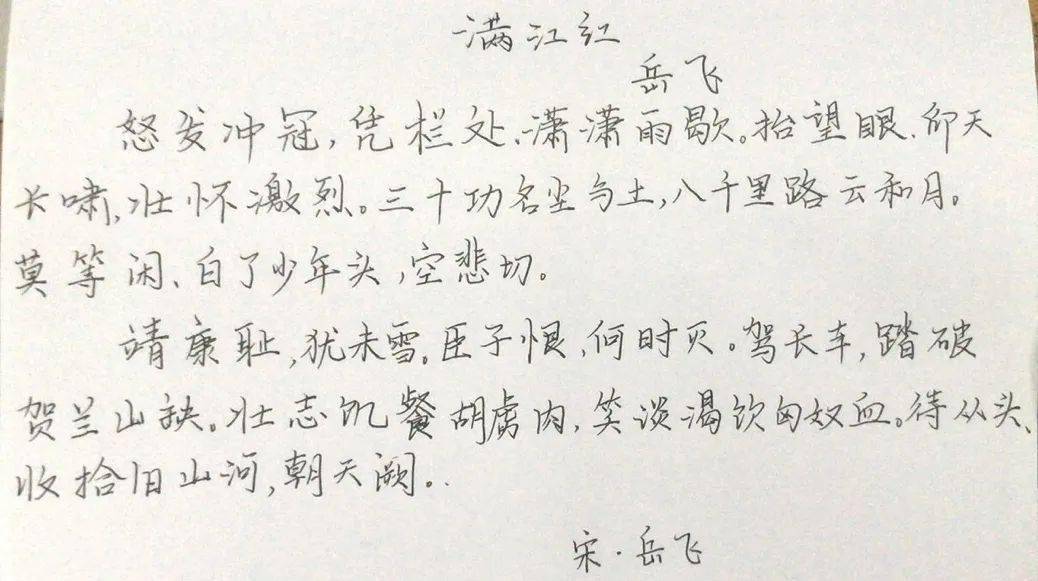 满江红
岳飞
怒发冲冠,凭栏处、潇潇雨歇。抬望眼、仰天
长啸,壮怀激烈。三十功名尘与土,八千里路云和月。
莫等闲、白了少年头,空悲切。
靖康耻,犹未雪。臣子恨,何时灭。驾长车,踏破
贺兰山缺。壮志饥餐胡虏肉,笑谈渴饮匈奴血。待从头、
收拾旧山河,朝天阙。.
宋·岳飞